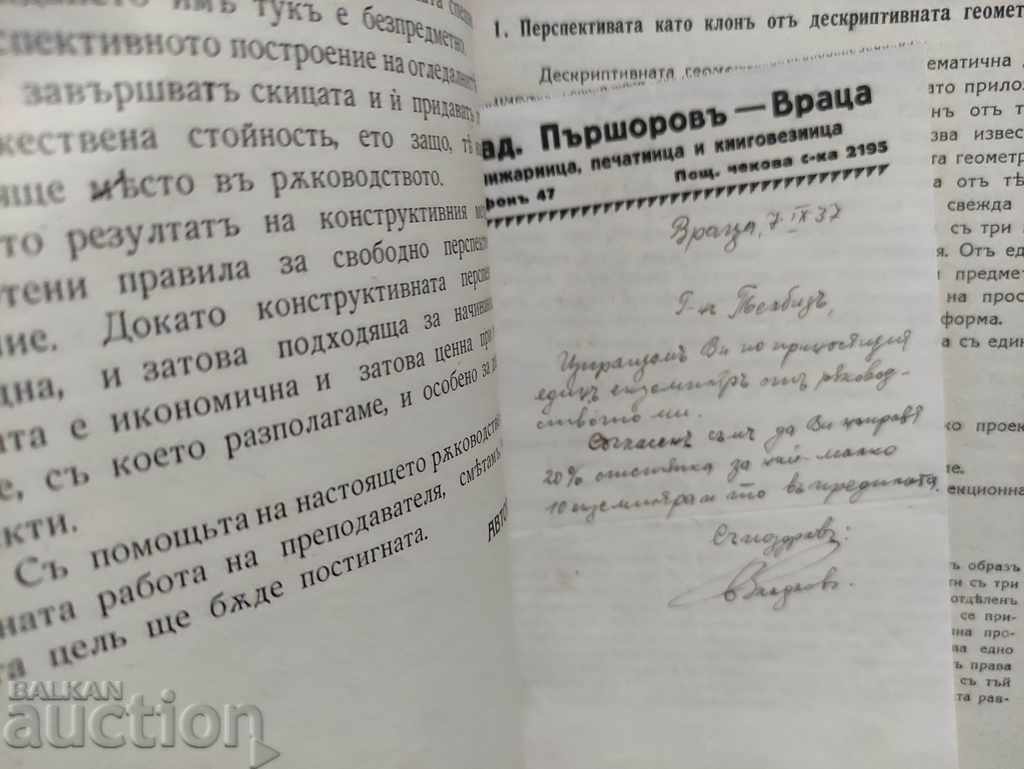 имъ тукъ е безпредметно
спективното построение на огледалните
завършватъ скицата и ѝ придаватъ
жествена стойность, ето защо, тѣ
мѣсто въ рѫководството.
то резултатъ на конструктивния
тени правила за свободно
ние. Докато конструктивната
дна, и затова подходяща за
ата е икономична и затова ценна при
е, съ което разполагаме, и особено за
екти.
Съ помощьта на настоящето рѫководство
ната работа на преподавателя, смѣтамъ
та цель ще бѫде постигната.
1. Перспективата като клонъ отъ дескриптивната геомет
Дескриптивната
ад. Пършоровъ — Враца
нижарница, печатница и книговезница
фонъ 47 Пощ. чекова с-ка 2195
Враца, 7 IX 37
Г-нъ
Изпращамъ Ви по
единъ екземпляръ отъ рѫковод-
ството ми.
Съгласенъ съмъ да Ви направя
20% отстѫпка за най-малко
10 екземпляра
Съ поздравъ:
ематична
ато прилож
нъ отъ т
зва извес
та геометр
а отъ тѣ
свежда
съ три
я. Отъ ед
и предмет
на прос
форма.
а съ един
ко проек
ие.
екционна
ъ образъ
ти съ три
отдѣленъ
се при-
на про-
ва едно
ъ права
съ тъй
та рав-
BALKAN
auction